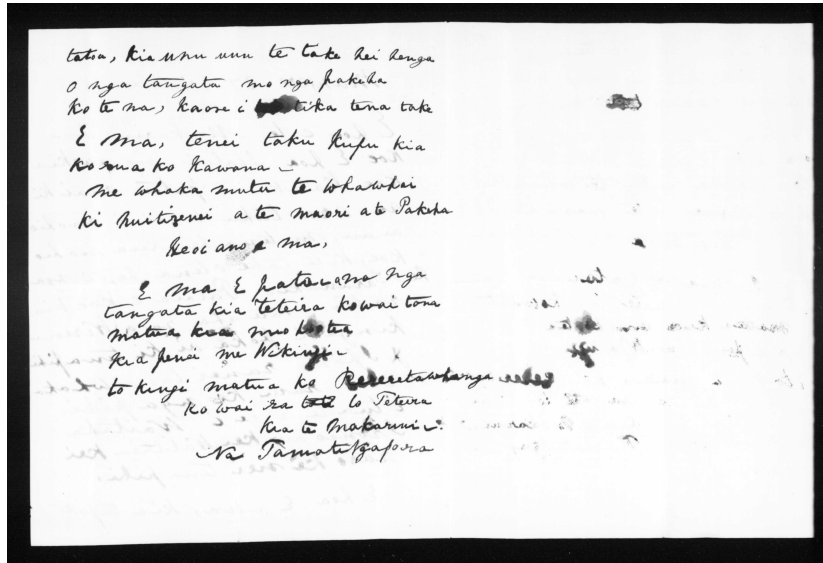 tatou, kia unu unu te take hei henga
o nga tangata mo nga pakeha
ko te na, kaore i tika tena take
E ma, tenei taku kupu kia
korua ko Kawana -
me whaka mutu te whawhai
ki Nuitirenei a te maori a te Pakeha
Heoi ano e ma,
E ma E patai ano nga
tangata kia Teteira kowai tona
matua
kia penei me Wikingi -
to kingi matua ko Rereretawhanga
ko wai ra to Teteira
Kia te Makarini -
Na Tamati Ngapora